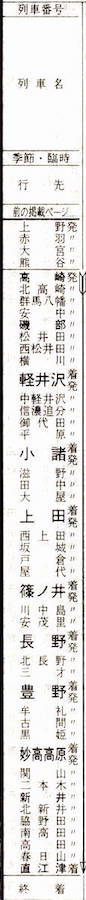 列車番号
列車名
季節・臨時
行先
前の掲載ページ
上野発
赤羽〃
大宮〃
熊谷〃
高崎発
北高崎〃
群馬八幡〃
安中〃
磯部〃
松井田〃
西松井田〃
横川〃
軽井沢着発
中軽井沢〃
信濃追分〃
御代田〃
平原〃
小諸着発
滋野〃
田中〃
大屋〃
上田着発
西上田〃
坂城〃
戸倉〃
屋代〃
篠ノ井着発
川中島〃
安茂里〃
長野着発
北長野〃
三才〃
豊野着発
牟礼〃
古間〃
黒姫〃
妙高高原着発
関山〃
二本木〃
新井〃
北新井〃
脇野田〃
南高田〃
高田〃
春日山〃
直江津着
終着